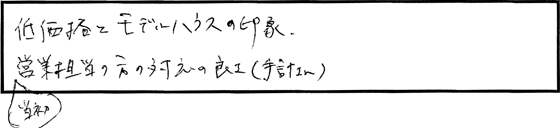 低価格とモデルハウスの印象.
営業担当の方の対応の良さ(手計さん)
当初